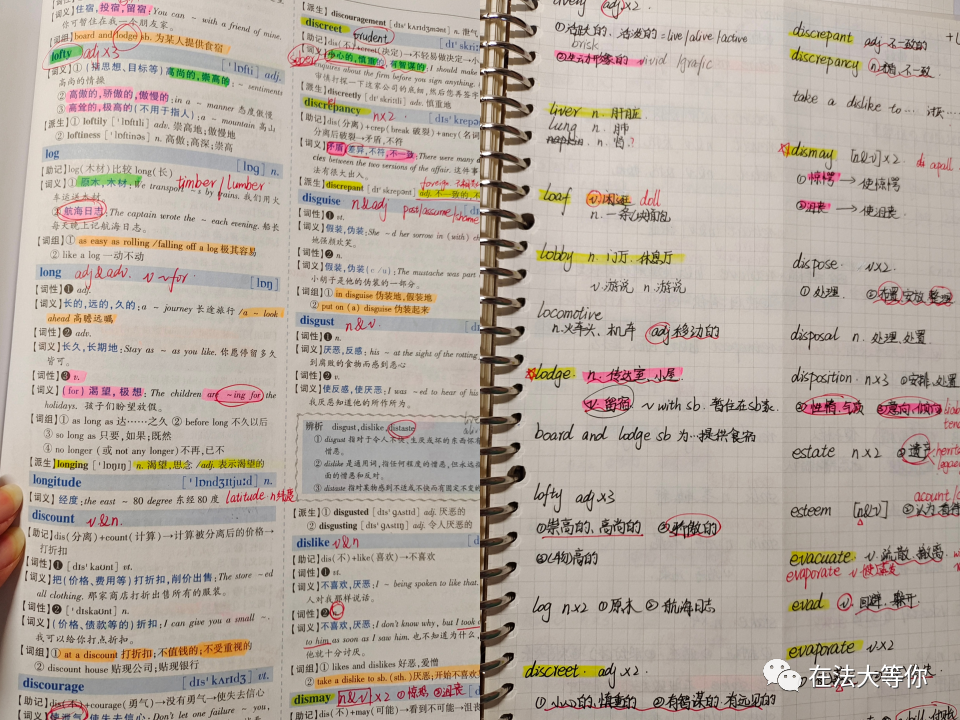 【词义】住宿,投宿,留宿:You can ~ with a friend of mine.
你可暂住在我一个朋友家。
【词组】board and lodge sb. 为某人提供食宿
lofty adj×3 [ˈlɒfti] adj.
【词义】①(指思想、目标等)高尚的,崇高的:~ sentiments
高尚的情操
②高傲的,骄傲的,傲慢的:in a ~ manner 态度傲慢
③高耸的,极高的(不用于指人):a ~ mountain 高山
【派生】①loftily [ˈlɒftɪli] adv. 崇高地;傲慢地
②loftiness [ˈlɒftinəs] n. 高傲;高深;崇高
log [lɒg] n.
【助记】log(木材)比较 long(长)
【词义】①原木,木材: timber/lumber
车运送木材
②航海日志:The captain wrote the ~ each evening. 船长
每天晚上记航海日志。
【词组】①as easy as rolling/falling off a log 极其容易
②like a log 一动不动
long adj&adv. v ~for [lɒŋ]
【词性】❶ adj.
【词义】长的,远的,久的:a ~ journey 长途旅行/a ~ look
ahead 高瞻远瞩
【词性】❷ adv.
【词义】长久,长期地:Stay as ~ as you like. 你愿停留多久
皆可。
【词性】❸ v.
【词义】(for)渴望,极想:The children are ~ing for the
holidays. 孩子们盼望放假。
【词组】①as long as 达……之久 ②before long 不久以后
③so long as 只要,如果;既然
④no longer (或 not any longer)不再,已不
【派生】longing [ˈlɒŋɪŋ] n. 渴望,思念/adj. 表示渴望的
longitude [ˈlɒndʒɪtjuːd] n.
【词义】经度:the east ~ 80 degree 东经 80 度 latitude n纬度
discount v&n.
【助记】dis(分离)+count(计算)→计算被分离后的价格→
打折扣
【词性】❶ [dɪsˈkaʊnt] vt.
【词义】把(价格、费用等)打折扣,削价出售:The store ~ed
all clothing. 那家商店打折出售所有的服装。
【词性】❷ [ˈdɪskaʊnt] n.
【词义】(价格、债款等的)折扣:I can give you a small ~.
我可以给你打点折扣。
【词组】①at a discount 打折扣;不值钱的,不受重视的
②discount house 贴现公司;贴现银行
discourage [dɪsˈkʌrɪdʒ] vt.
【助记】dis(不)+courage(勇气)→没有勇气→使失去信心
使失去信心:Don't let one failure ~ you,
【派生】discouragement [dɪsˈkʌrɪdʒmənt] n. 泄气
discreet prudent
【助记】dis(不)+creet(决定)→不轻易做决定→小
小心的,慎重的,有智谋的:I should make
inquires about the firm before you sign anything.
审慎打探一下这家公司的底细,然后你再签字
【派生】discreetly [dɪˈskriːtli] adv. 慎重地
discrepancy n×2
【助记】dis(分离)+crep(break 破裂)+ancy(名词
分离后破裂→矛盾,不符
【词义】矛盾,差异,不符,不一致:There were many
cies between the two versions of the affair. 这件事
法有很大出入。
【派生】discrepant [dɪˈskrepənt] adj. 不一致的,不
disguise n&adj
【词性】❶ vt.
【词义】假装,伪装:She ~d her sorrow in (with)
她强颜欢笑。
【词性】❷ n.
【词义】假装,伪装(c/u):The mustache was part
小胡子是他的伪装的一部分。
【词组】①in disguise 伪装地,假装地
②put on (a) disguise 伪装起来
disgust n&v.
【词性】❶ n.
【词义】厌恶,反感:his ~ at the sight of the rotting
到腐败的食物而感到恶心
【词性】❷ v.
【词义】使反感,使厌恶:I was ~ed to hear of his
我厌恶知道他的所作所为。
辨析 disgust,dislike,distaste
①disgust 指对于令人不快,生厌或坏的东西怀有
憎恶。
②dislike 是通用词,指任何程度的憎恶,但永远
面的憎恶和反对。
③distaste 指对某物感到不适或不快而有固定不变的
【派生】①disgusted [dɪsˈgʌstɪd] adj. 厌恶的
②disgusting [dɪsˈgʌstɪŋ] adj. 令人厌恶的
dislike v&n
【助记】dis(不)+like(喜欢)→不喜欢
【词性】❶ vt.
【词义】不喜欢,厌恶:I ~ being spoken to like that.
人对我那样说话。
【词性】❷
【词义】不喜欢,厌恶:I don't know why, but I took
to him as soon as I saw him. 也不知道为什么,
他就十分讨厌。
【词组】①likes and dislikes 好恶,爱憎
②take a dislike to sb. (sth.)厌恶;开始不喜欢
dismay n&v×2 ①惊愕 ②沮丧
【助记】dis(不)+may(可能)→看到不可能→沮丧
lively adj×2
①活跃的、活泼的=live/alive/active
brisk
②生动形象的 vivid
liver n. 肝脏
lung n. 肺
loaf v.闲逛 doll
n. 一条/块面包
lobby n. 门厅、休息厅
v.游说 n.游说
locomotive
n.火车头、机车 adj移动的
lodge. n. 传达室、小屋
v.留宿 ~ with sb. 暂住在sb家.
board and lodge sb 为…提供食宿
lofty adj×3
①崇高的、高尚的 ②骄傲的
log n×2 ①原木 ②航海日志
discreet. adj×2
①小心的、慎重的 ②有智谋的、有远见的
discrepant adj 不一致的
discrepancy
take a dislike to…
dismay [n&v]×2
①惊愕 → 使惊愕
②沮丧 → 使沮丧.
dispose. v×2
①处理 ②布置 安放 整理
disposal n. 处理、处置
disposition. n×3 ①安排、处置
②性情、气质 ③意向、倾向
estate n×2 ②遗产
esteem [n&v]
evacuate. v. 疏散、撤离
evaporate v.使蒸发
evad v. 回避、躲开
evaporate v×2
在法大等你